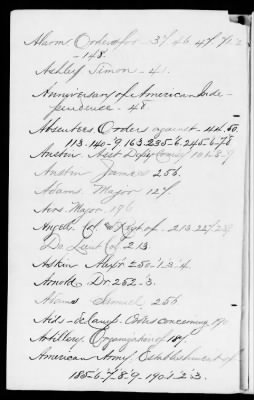 Alarm Orders for 37. 46. 47. 71.
- 148.
Ashley Simon - 41.
Anniversary of American Inde-
pendence - 48
Absentees. Orders against - 44. 50.
113. 140-9. 163. 235-6. 245-6-7-8
Austin
Austin James 256.
Adams Major 127.
Major 176
Angell Col. Regt of. 213. 227.
Do Lieut Col 213.
Askin Alexr 250-1-3-4.
Arnold Dr. 252-3.
Samuel 256
Aids-de Camp. Orders concerning 190
Artillery. Organization of 187.
American Army. Establishment of
185-6-7-8-9. 190-1-2-3.